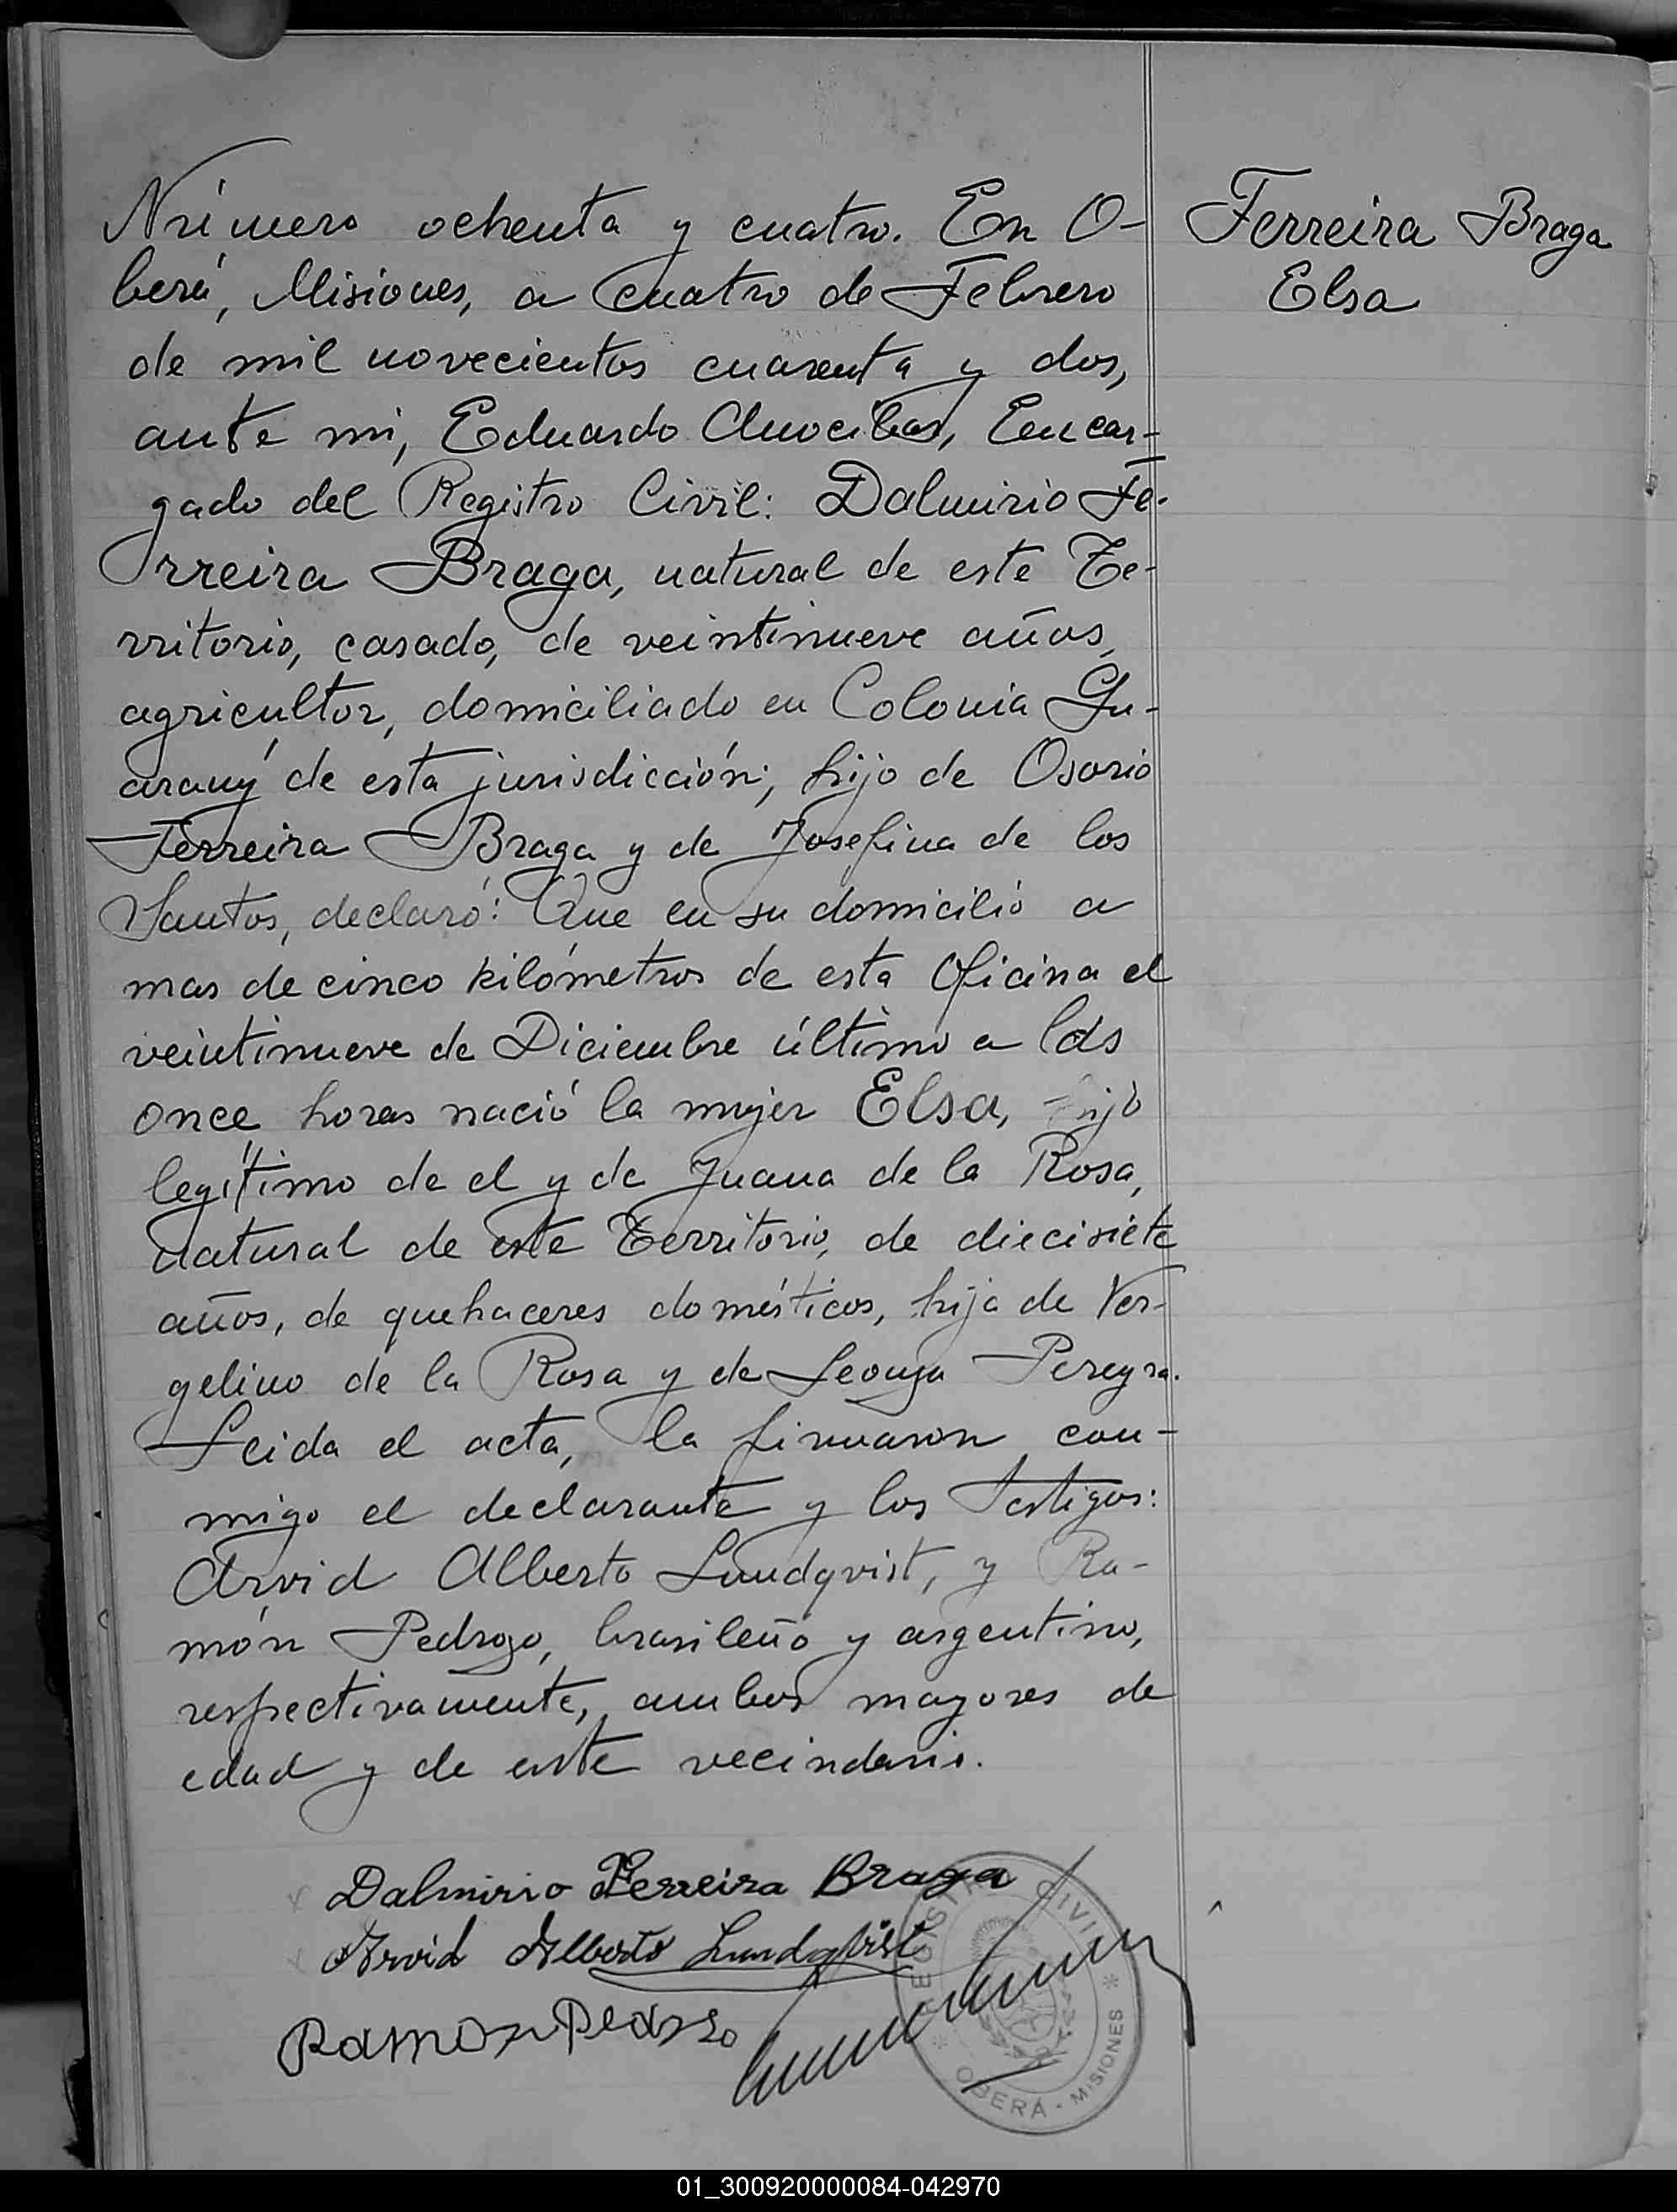 Número ochenta y cuatro. En O-
berá, Misiones, a cuatro de Febrero
de mil novecientos cuarenta y dos,
ante mi, Eduardo Encar-
gado del Registro Civil: Dalmirio Fe-
rreira Braga, natural de este Te-
rritorio, casado, de veintinueve años,
agricultor, domiciliado en Colonia Gu-
arany de esta jurisdicción; hijo de Osorio
Ferreira Braga y de Josefina de los
Santos, declaró: Que en su domicilio a
mas de cinco kilómetros de esta Oficina el
veintinueve de Diciembre último a las
once horas nació la mujer Elsa, hijo
legítimo de el y de Juana de la Rosa,
natural de este Territorio, de diecisiete
años, de quehaceres domésticos, hija de Ver-
gelino de la Rosa y de Pereyra.
Leida el acta, la firmaron con-
migo el declarante y los testigos:
Arvid Alberto Lundqvist, y Ra-
món Pedrozo, brasileño y argentino,
respectivamente, ambos mayores de
edad y de este vecindario.
Ferreira Braga
Elsa
Dalmirio Ferreira Braga
Arvid Alberto Lundqvist
Ramon Pedrozo
REGISTRO CIVIL
OBERÁ - MISIONES
01_300920000084-042970